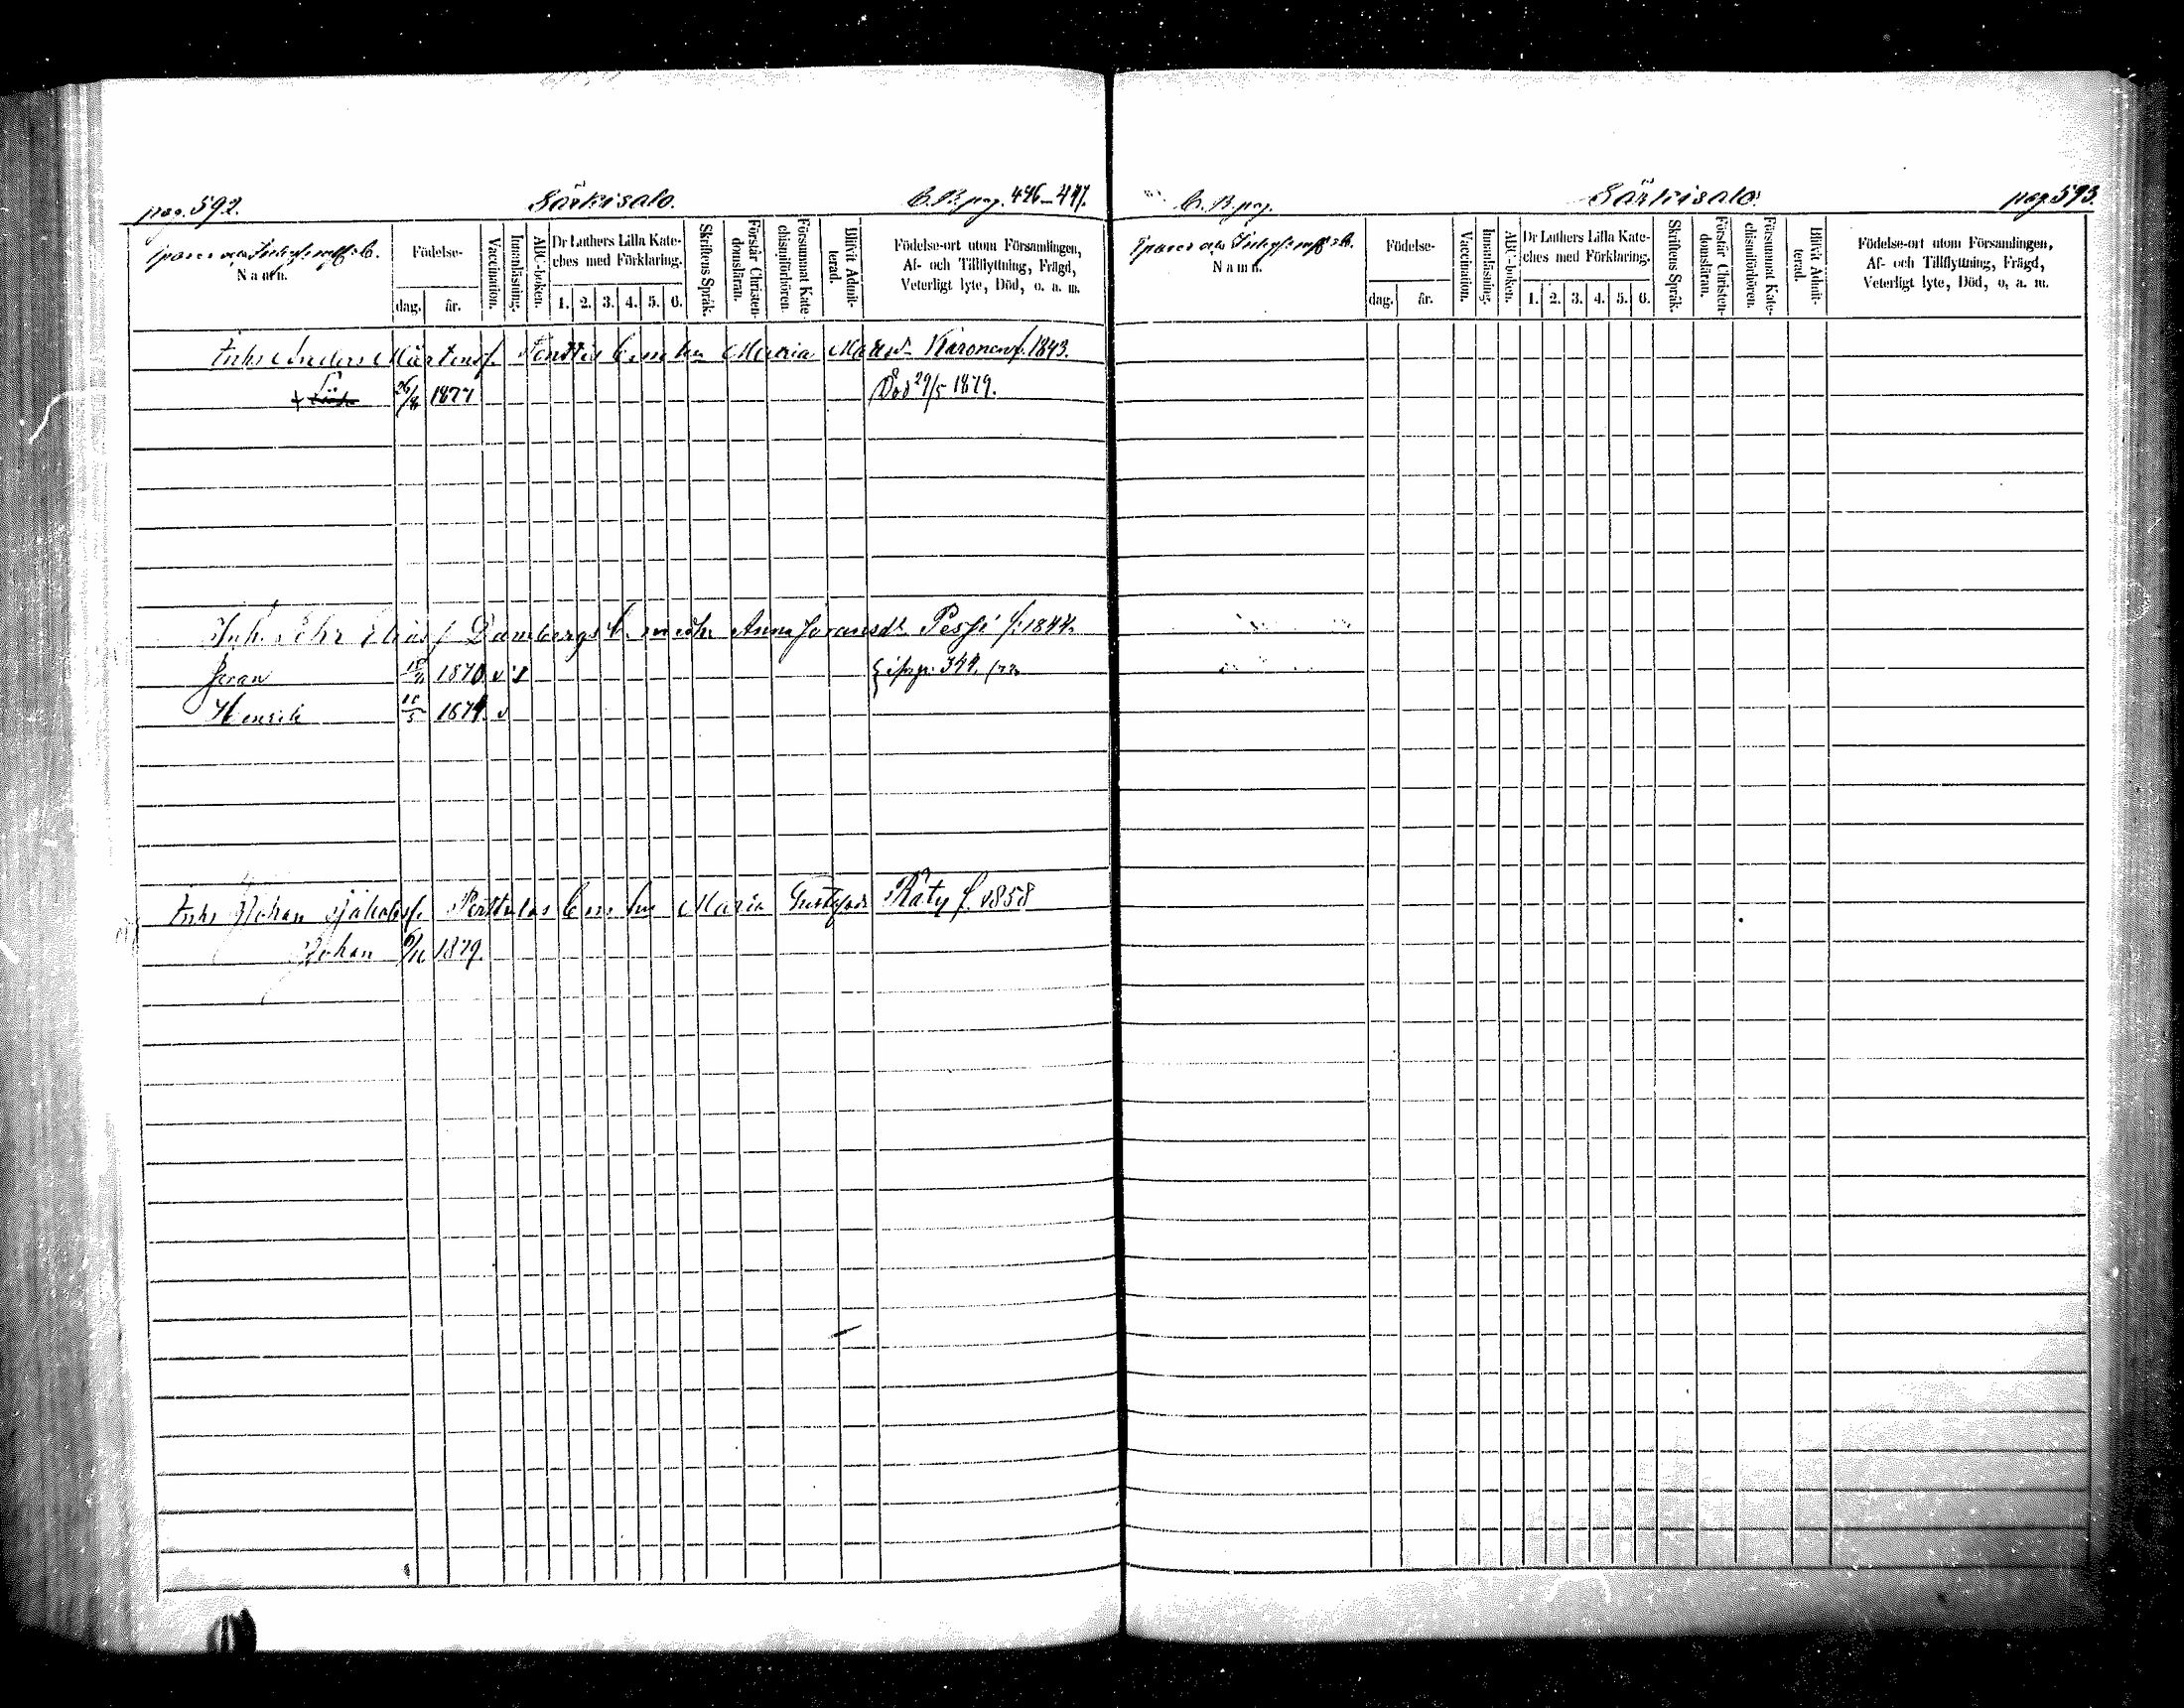 pag. 592. Särkisalo. C.B. pag. 446-447.
Namn. Födelse- dag. år. Vaccination. Innanläsning. ABC-boken. Dr Luthers Lilla Kateches med Förklaring. 1. 2. 3. 4. 5. 6. Skriftens Språk. Förstår Christendomsläran. Försummat Katechismiförhören. Blifvit Admitterad. Födelse-ort utom Församlingen, Af- och Tillflyttning, Frägd, Veterligt lyte, Död, o. a. m.
Inhs Anders Mårtensf. Penttis C. m hu Maria Karonen f. 1843.
26/8 1877 Död 29/5 1879.
Inh. Eliasf. Dambergs C. m Anna Joransdr Pessi f. 1844.
Jöran 1870. v
Henrik v
Inhs Johan Jakobsf. Perttulas C m hu Maria Gustafsdr Räty f. 1858
Johan 1879.
C.B. pag. Särkisalo. pag. 593.
Namn. Födelse- dag. år. Vaccination. Innanläsning. ABC-boken. Dr Luthers Lilla Kateches med Förklaring. 1. 2. 3. 4. 5. 6. Skriftens Språk. Förstår Christendomsläran. Försummat Katechismiförhören. Blifvit Admitterad. Födelse-ort utom Församlingen, Af- och Tillflyttning, Frägd, Veterligt lyte, Död, o. a. m.